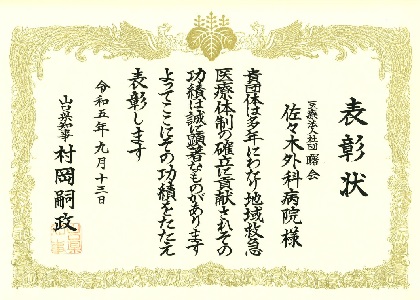 表彰状
医療法人社団曙会
佐々木外科病院様
貴団体は多年にわたり地域救急
医療体制の確立に貢献されその
功績は誠に顕著なものがあります
よってここにその功績をたたえ
表彰します
令和五年九月十三日
山口県知事 村岡嗣政